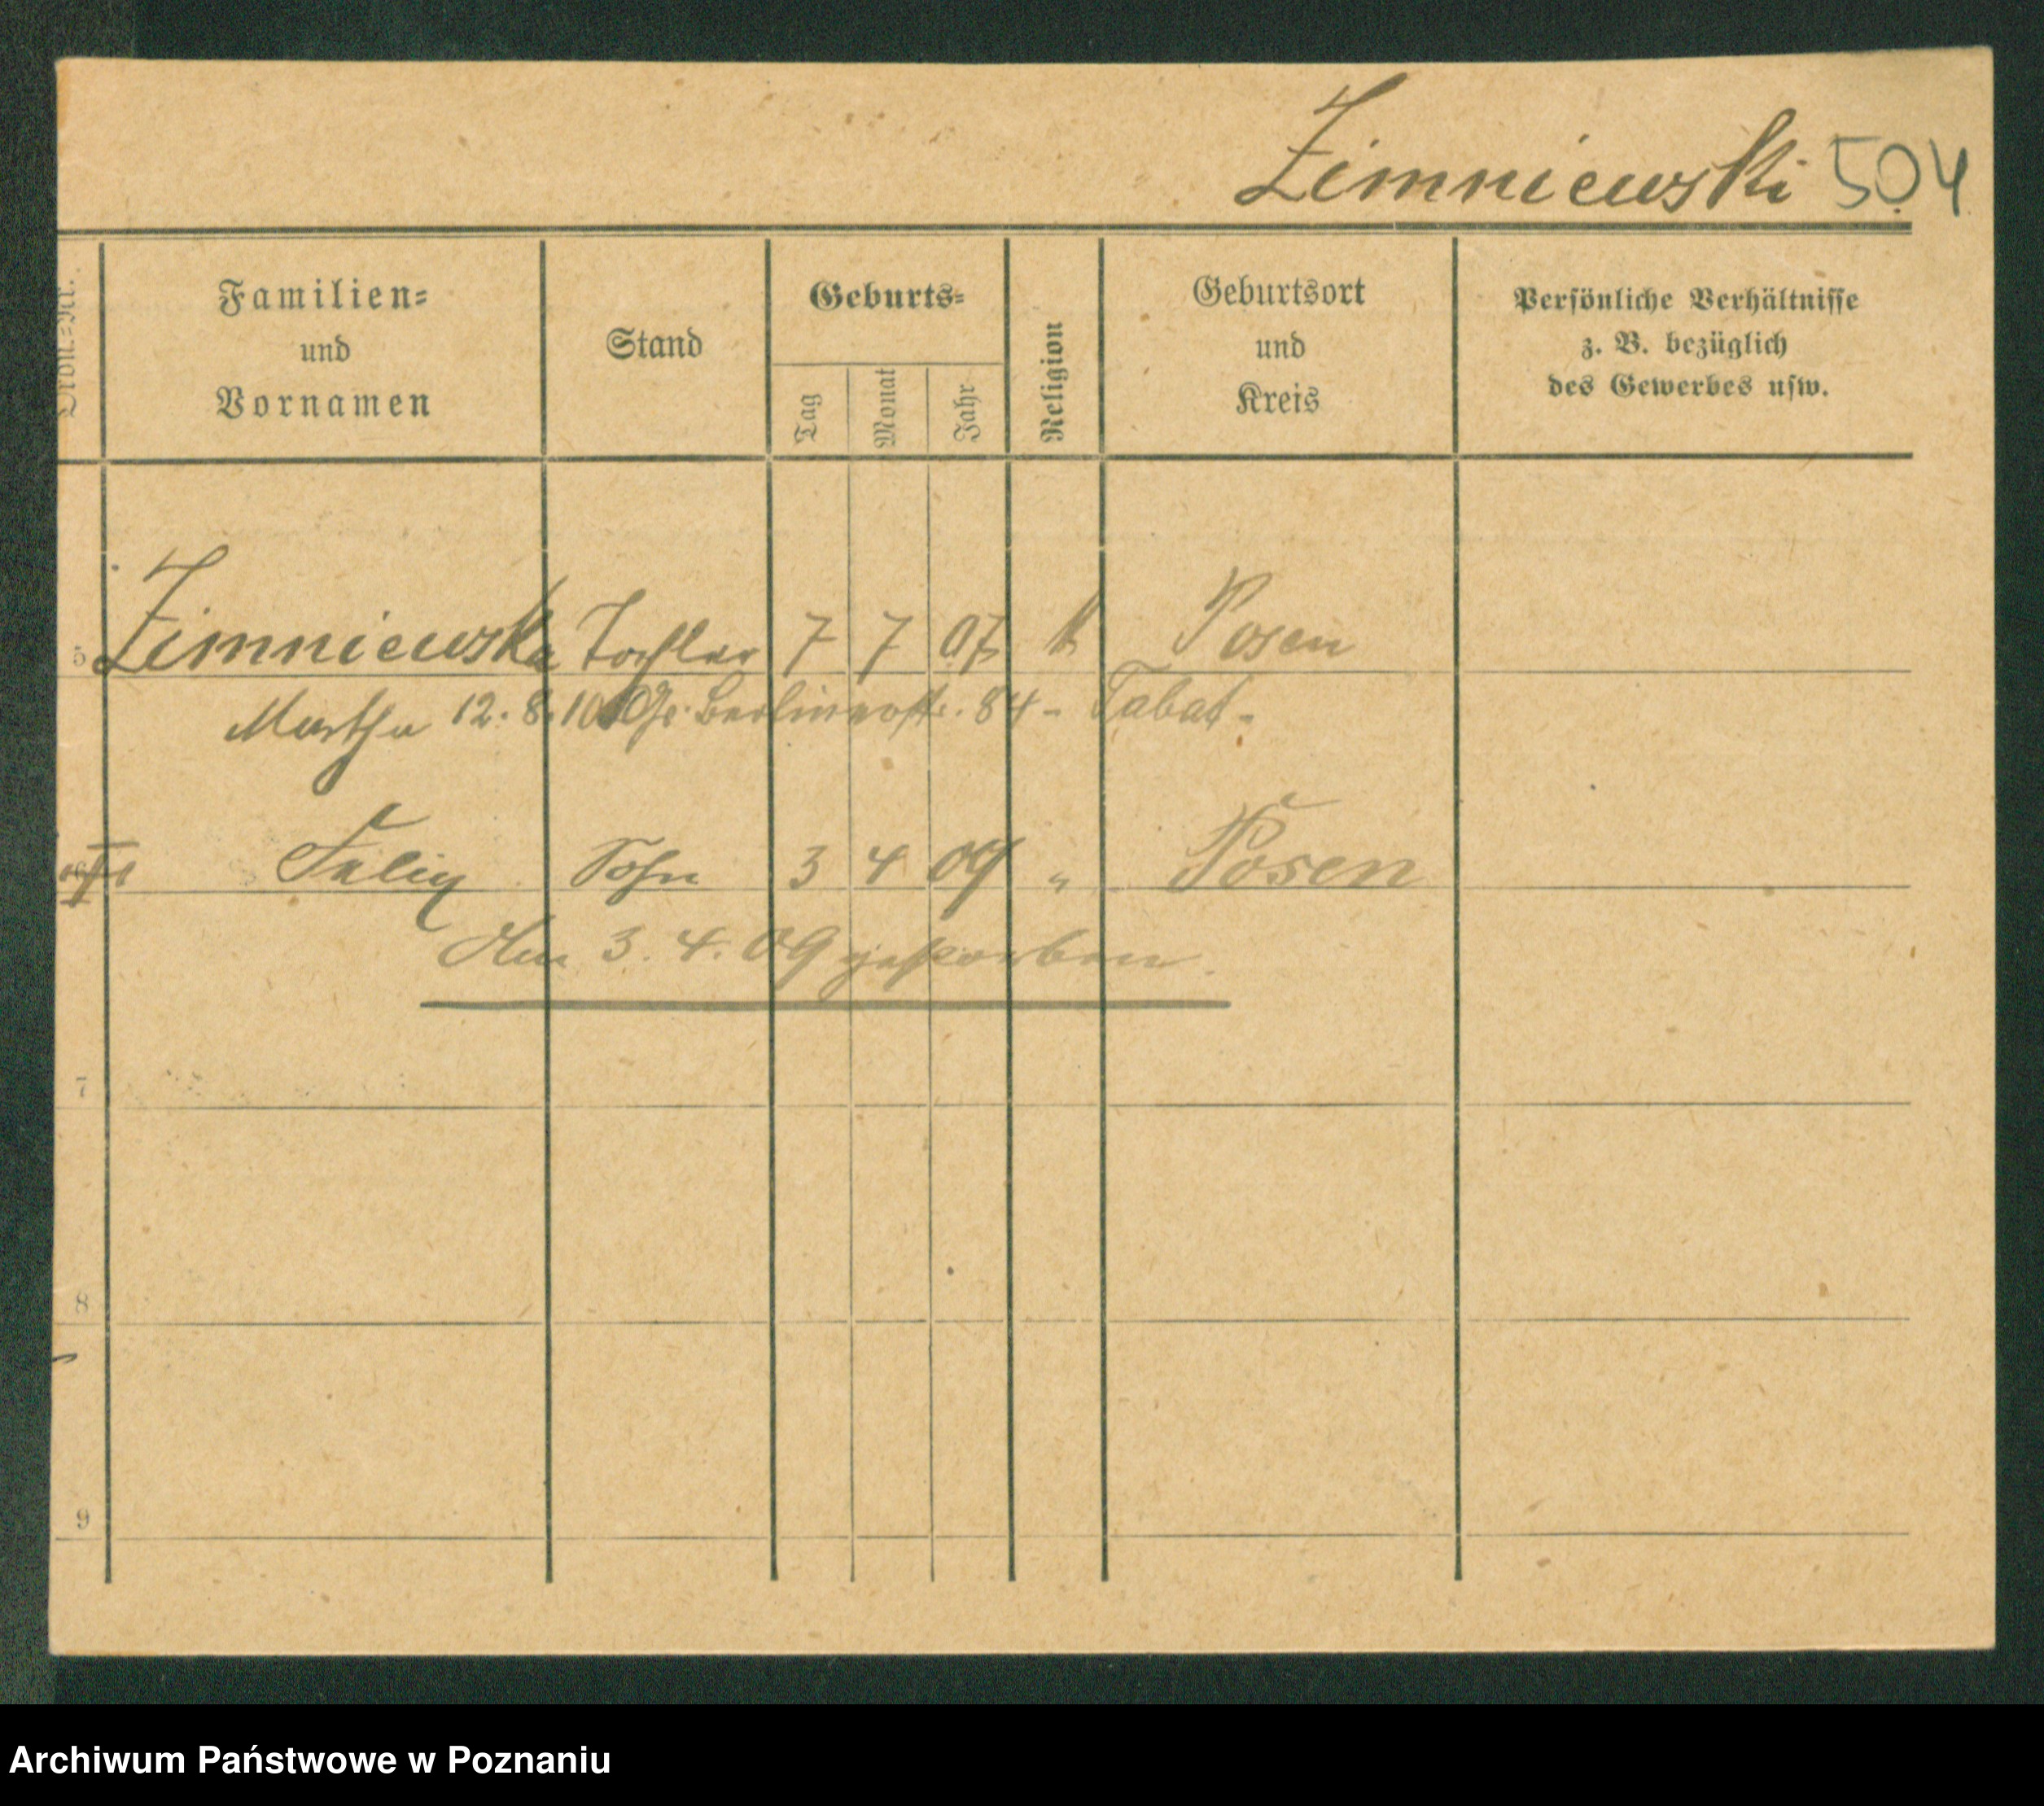 Zimniewski 504
Ordn.=Nr.
Familien=
und
Vornamen
Stand
Geburts=
Tag
Monat
Jahr
Religion
Geburtsort
und
Kreis
Persönliche Verhältnisse
z. B. bezüglich
des Gewerbes usw.
5 Zimniewska Tochter 7 7 07 k Posen
Martha 12. 8. 10 Berlinerstr. 84 - Tabat -
Felix Sohn 3 4 09 " Posen
Am 3. 4. 09 gestorben.
7
8
9
Archiwum Państwowe w Poznaniu